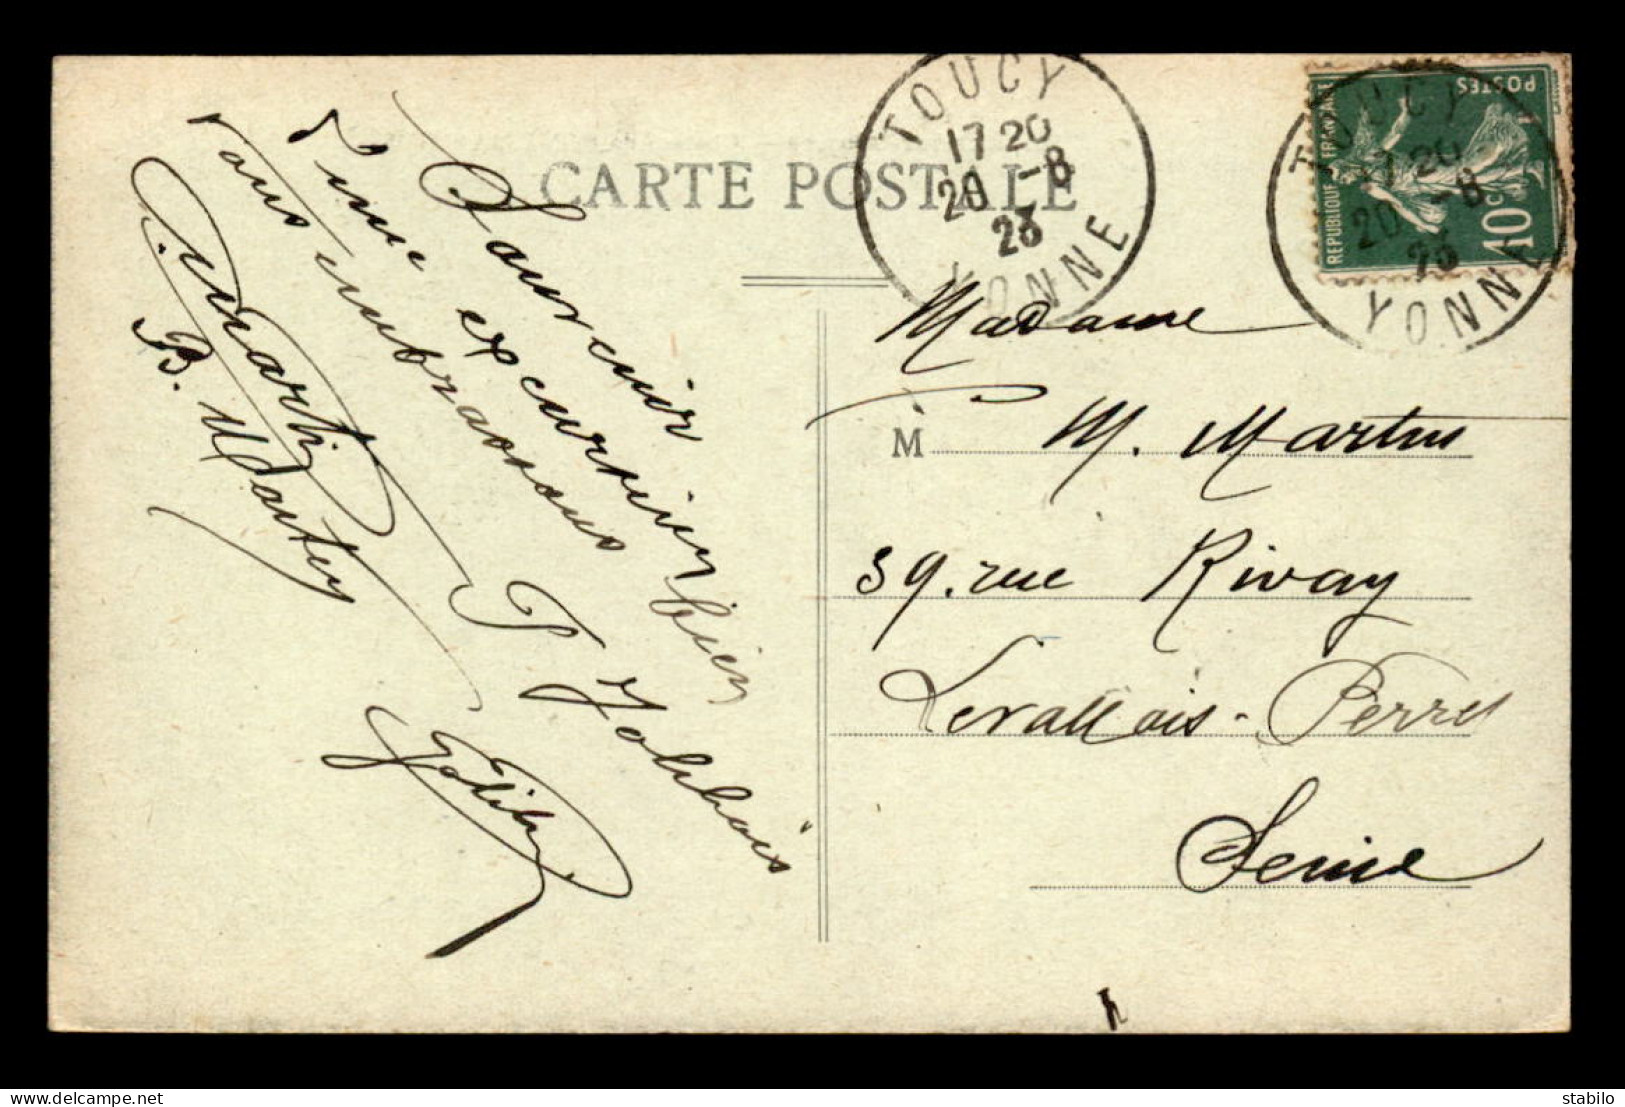 CARTE POSTALE
TOUCY
17 20
20 -8
23
YONNE
TOUCY
17 20
20 -8
23
YONNE
REPUBLIQUE FRANÇAISE
POSTES
10c
Souvenir
d'une excursion bien
vous embrassons
Martin
B. Martin
Madame
M. M. Martin
39. rue Rivay
Levallois-Perret
Seine
www.delcampe.net
stabilo